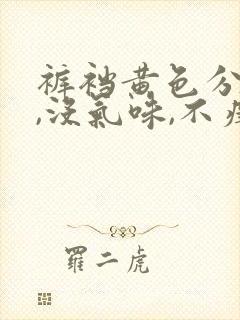 裤裆黄色分
,没氣味,不
羅二虎